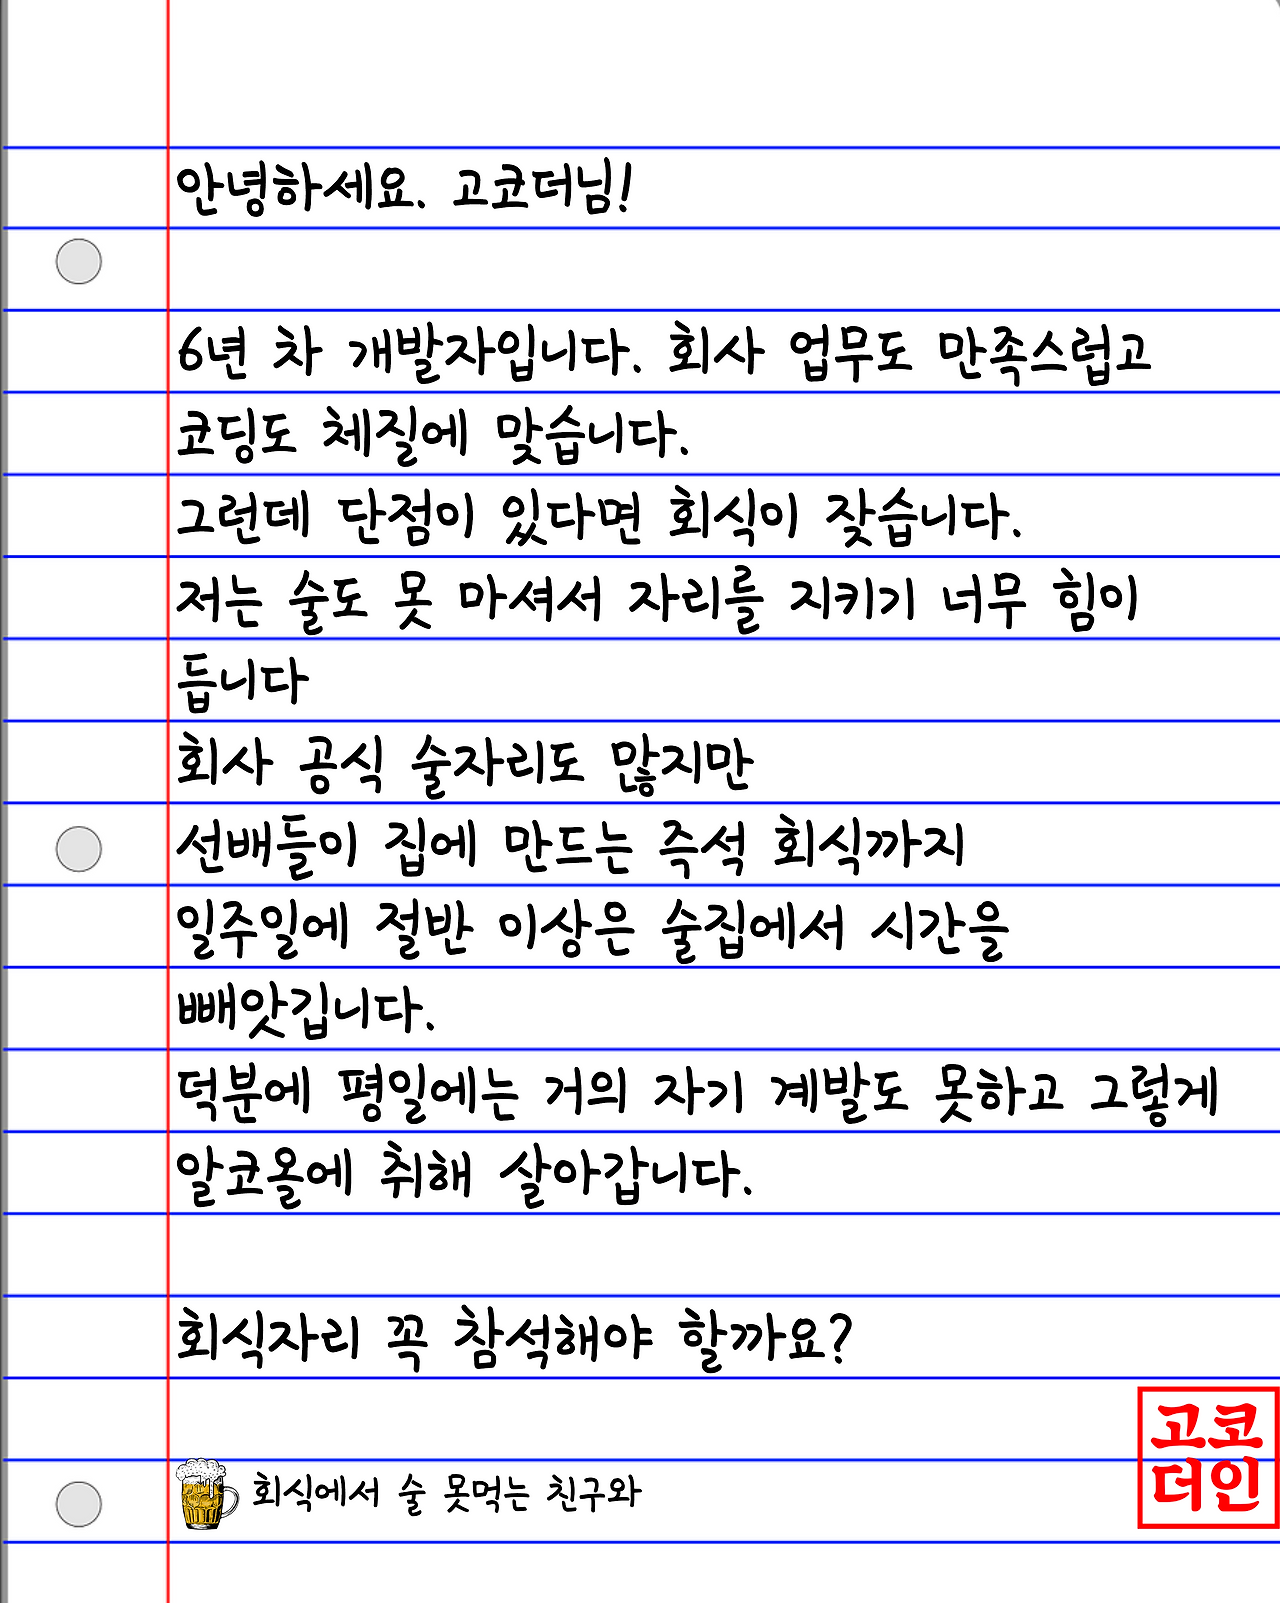 안녕하세요. 고코더님!
6년 차 개발자입니다. 회사 업무도 만족스럽고
코딩도 체질에 맞습니다.
그런데 단점이 있다면 회식이 잦습니다.
저는 술도 못 마셔서 자리를 지키기 너무 힘이
듭니다
회사 공식 술자리도 많지만
선배들이 집에 만드는 즉석 회식까지
일주일에 절반 이상은 술집에서 시간을
빼앗깁니다.
덕분에 평일에는 거의 자기 계발도 못하고 그렇게
알코올에 취해 살아갑니다.
회식자리 꼭 참석해야 할까요?
회식에서 술 못먹는 친구와
고코
더인